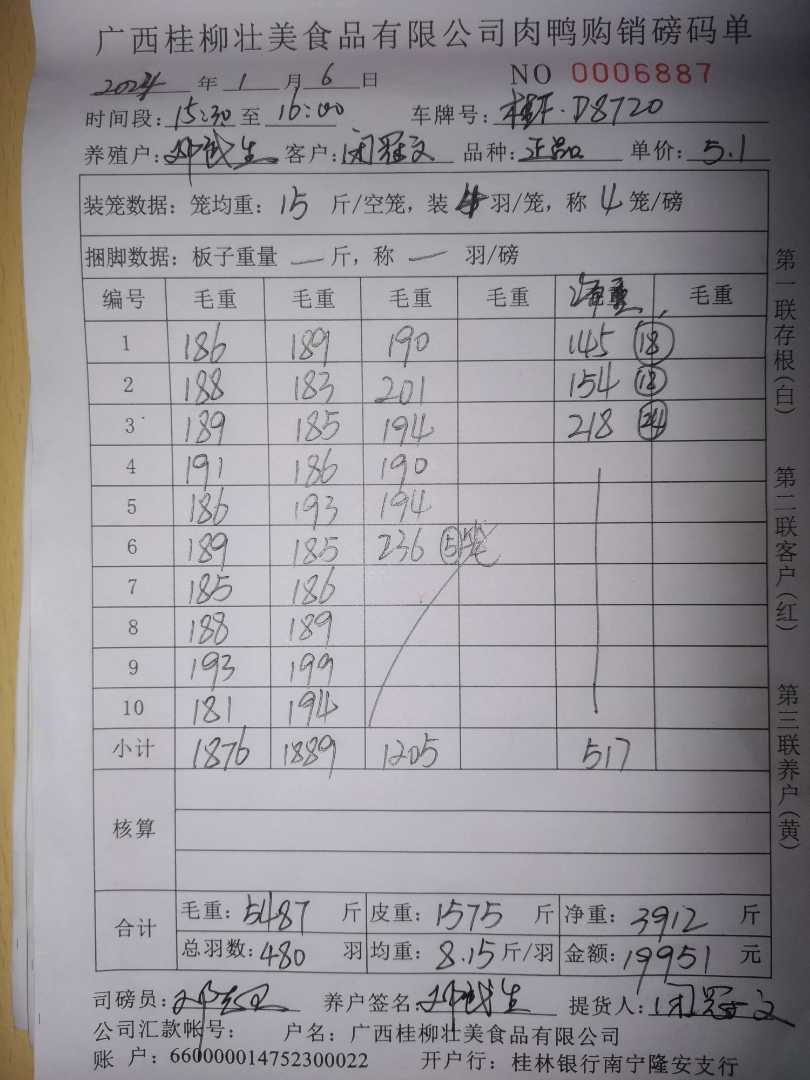 广西桂柳壮美食品有限公司肉鸭购销磅码单
2024年1月6日 NO 0006887
时间段:15:30至16:00 车牌号:桂F·D8720
养殖户: 客户:闭冠文 品种:正品 单价:5.1
装笼数据:笼均重:15斤/空笼,装 羽/笼,称4笼/磅
捆脚数据:板子重量—斤,称—羽/磅
编号 毛重 毛重 毛重 毛重 净重 毛重
1 186 189 190 145 18
2 188 183 201 154 18
3 189 185 194 218 24
4 191 186 190
5 186 193 194
6 189 185 236 5笼
7 185 186
8 188 189
9 193 199
10 181 194
小计 1876 1889 1205 517
核算
合计 毛重:5487斤 皮重:1575斤 净重:3912斤
总羽数:480羽 均重:8.15斤/羽 金额:19951元
司磅员: 养户签名: 提货人:闭冠文
公司汇款帐号: 户名:广西桂柳壮美食品有限公司
账户:660000014752300022 开户行:桂林银行南宁隆安支行
第一联存根(白)
第二联客户(红)
第三联养户(黄)